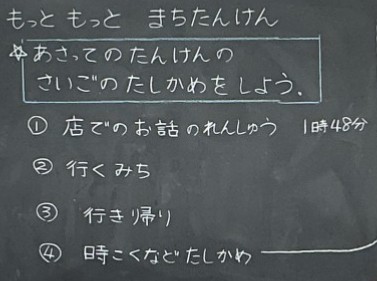 もっと もっと まちたんけん
☆ あさってのたんけんの
さいごのたしかめをしよう.
① 店でのお話のれんしゅう 1時48分
② 行くみち
③ 行き帰り
④ 時こくなどたしかめ